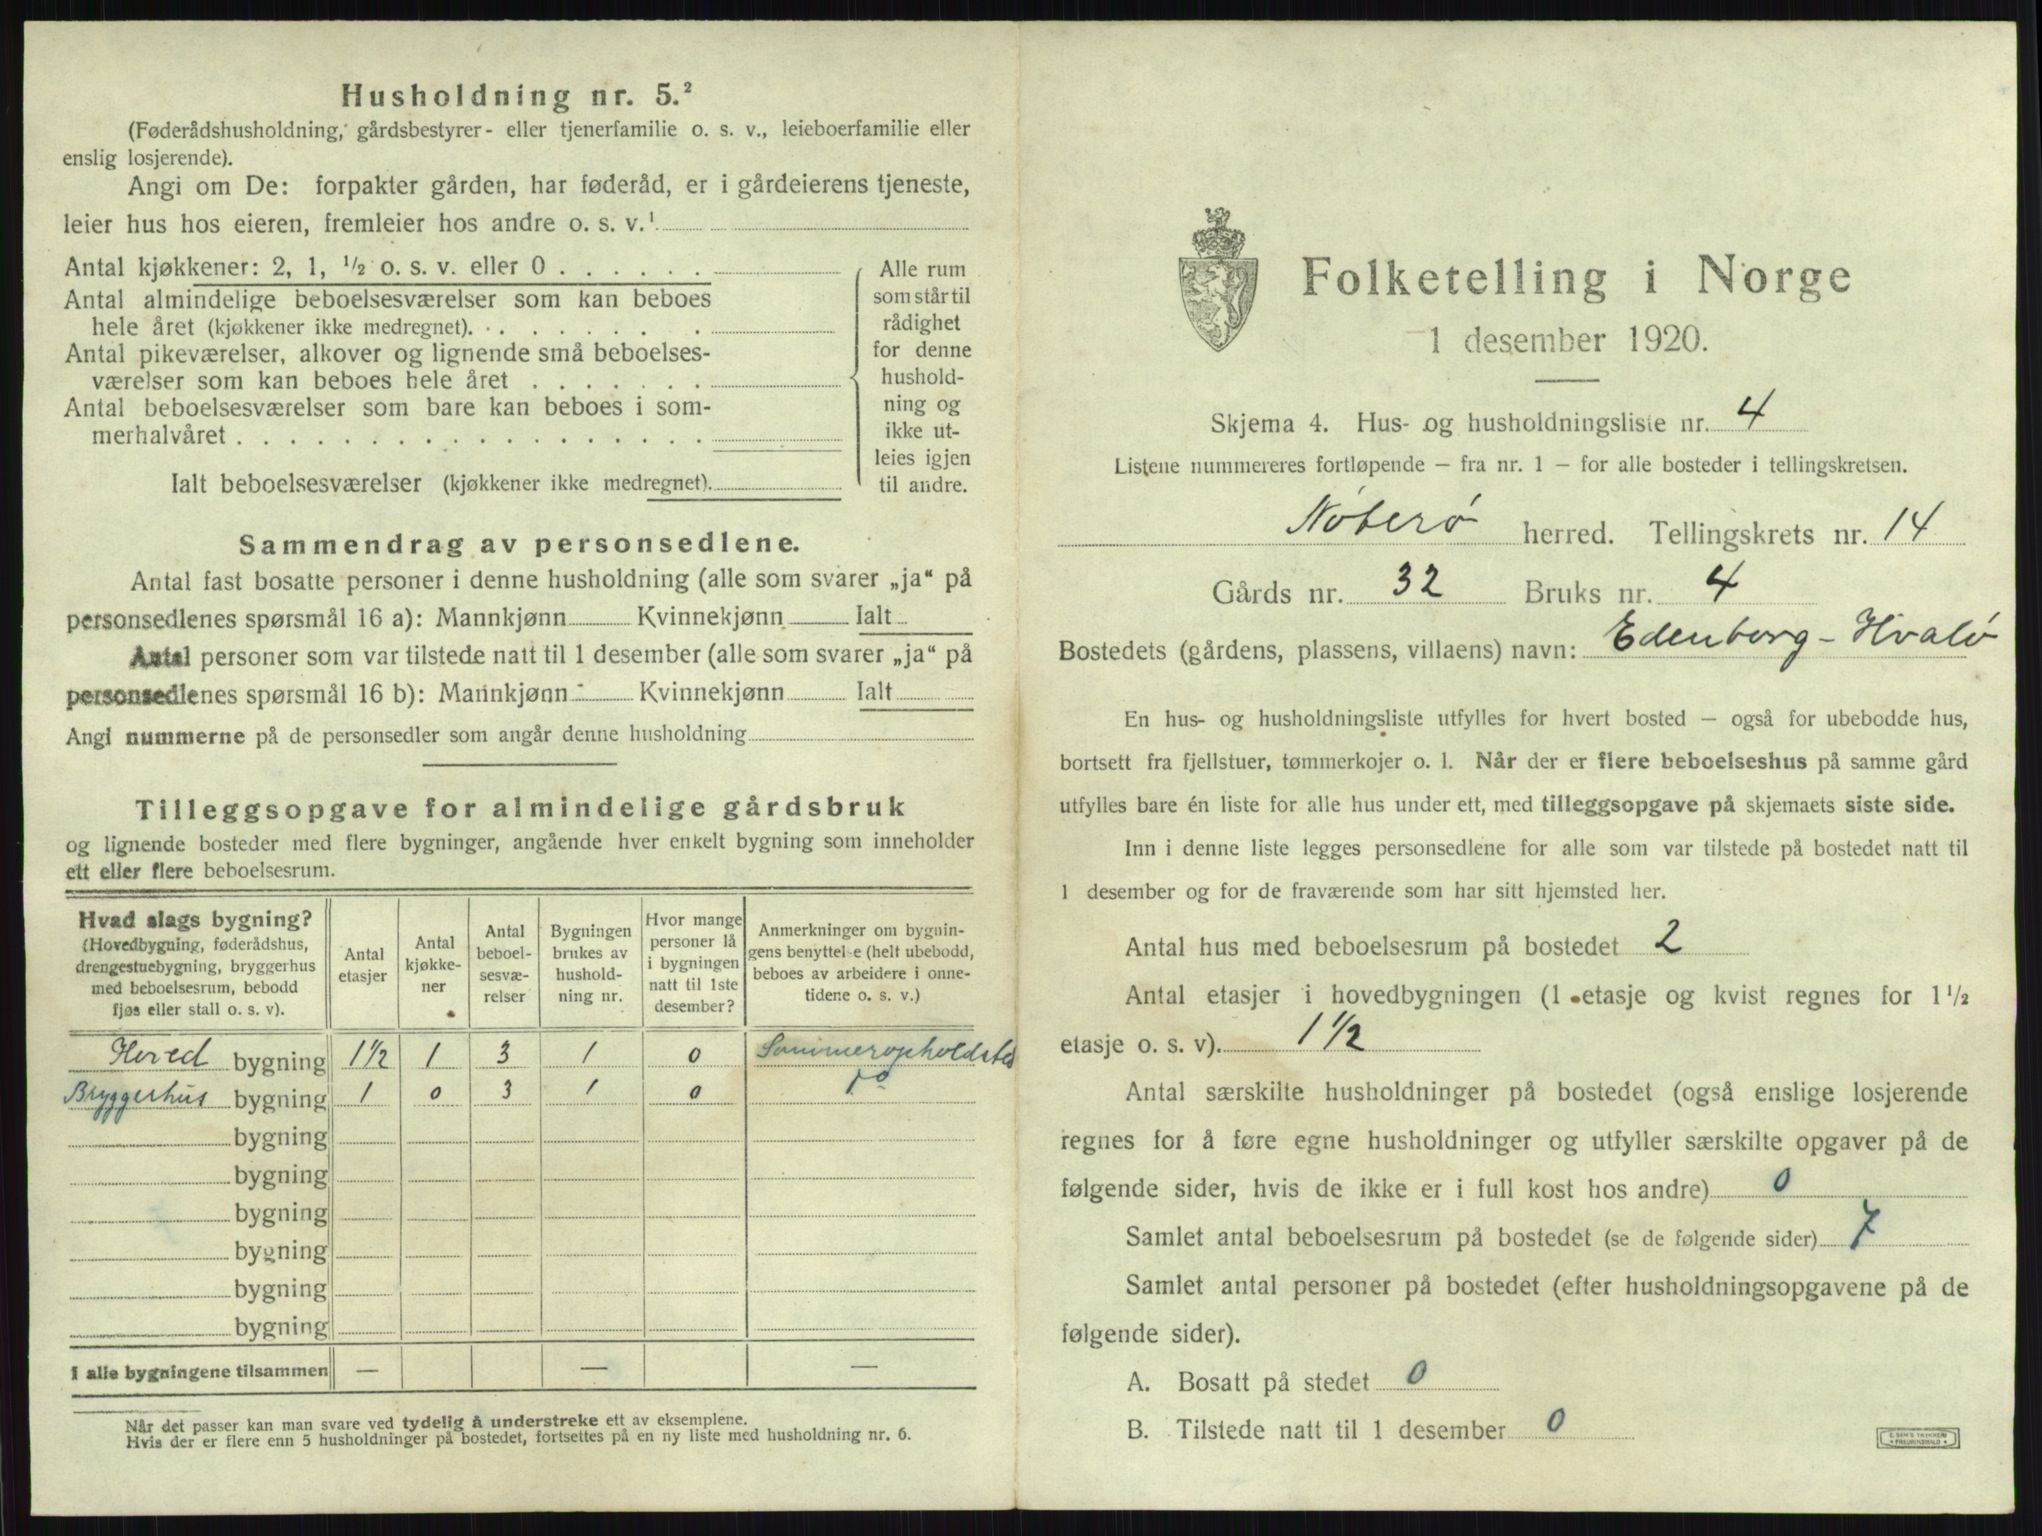 Husholdning nr. 5.²
(Føderådshusholdning, gårdsbestyrer- eller tjenerfamilie o. s. v., leieboerfamilie eller
enslig losjerende).
Angi om De: forpakter gården, har føderåd, er i gårdeierens tjeneste,
leier hus hos eieren, fremleier hos andre o. s. v.¹
Antal kjøkkener: 2, 1, ½ o. s. v. eller 0 . . . . . .
Antal almindelige beboelsesværelser som kan beboes
hele året (kjøkkener ikke medregnet). . . . . . . . .
Antal pikeværelser, alkover og lignende små beboelses-
værelser som kan beboes hele året . . . . . . .
Antal beboelsesværelser som bare kan beboes i som-
merhalvåret . . . . . . . . . . . . . . . . . .
Ialt beboelsesværelser (kjøkkener ikke medregnet).
Alle rum
som står til
rådighet
for denne
hushold-
ning og
ikke ut-
leies igjen
til andre.
Sammendrag av personsedlene.
Antal fast bosatte personer i denne husholdning (alle som svarer „ja“ på
personsedlenes spørsmål 16 a): Mannkjønn Kvinnekjønn Ialt
Antal personer som var tilstede natt til 1 desember (alle som svarer „ja“ på
personsedlenes spørsmål 16 b): Mannkjønn Kvinnekjønn Ialt
Angi nummerne på de personsedler som angår denne husholdning
Tilleggsopgave for almindelige gårdsbruk
og lignende bosteder med flere bygninger, angående hver enkelt bygning som inneholder
ett eller flere beboelsesrum.
Hvad slags bygning?
(Hovedbygning, føderådshus,
drengestuebygning, bryggerhus
med beboelsesrum, bebodd
fjøs eller stall o. s. v).
Antal
etasjer
Antal
kjøkke-
ner
Antal
beboel-
sesvæ-
relser
Bygningen
brukes av
hushold-
ning nr.
Hvor mange
personer lå
i bygningen
natt til 1ste
desember?
Anmerkninger om bygnin-
gens benyttelse (helt ubebodd,
beboes av arbeidere i onne-
tidene o. s. v.)
Hoved bygning 1½ 1 3 1 0 Sommeropholdsted
Bryggerhus bygning 1 0 3 1 0
bygning
bygning
bygning
bygning
bygning
bygning
I alle bygningene tilsammen — — —
Når det passer kan man svare ved tydelig å understreke ett av eksemplene.
Hvis der er flere enn 5 husholdninger på bostedet, fortsettes på en ny liste med husholdning nr. 6.
Folketelling i Norge
1 desember 1920.
Skjema 4. Hus- og husholdningsliste nr. 4
Listene nummereres fortløpende – fra nr. 1 – for alle bosteder i tellingskretsen.
Nøterø herred. Tellingskrets nr. 14
Gårds nr. 32 Bruks nr. 4
Bostedets (gårdens, plassens, villaens) navn: Edenborg - Hvalø
En hus- og husholdningsliste utfylles for hvert bosted – også for ubebodde hus,
bortsett fra fjellstuer, tømmerkojer o. l. Når der er flere beboelseshus på samme gård
utfylles bare én liste for alle hus under ett, med tilleggsopgave på skjemaets siste side.
Inn i denne liste legges personsedlene for alle som var tilstede på bostedet natt til
1 desember og for de fraværende som har sitt hjemsted her.
Antal hus med beboelsesrum på bostedet 2
Antal etasjer i hovedbygningen (1 etasje og kvist regnes for 1½
etasje o. s. v). 1½
Antal særskilte husholdninger på bostedet (også enslige losjerende
regnes for å føre egne husholdninger og utfyller særskilte opgaver på de
følgende sider, hvis de ikke er i full kost hos andre) 0
Samlet antal beboelsesrum på bostedet (se de følgende sider) 7
Samlet antal personer på bostedet (efter husholdningsopgavene på de
følgende sider).
A. Bosatt på stedet 0
B. Tilstede natt til 1 desember 0